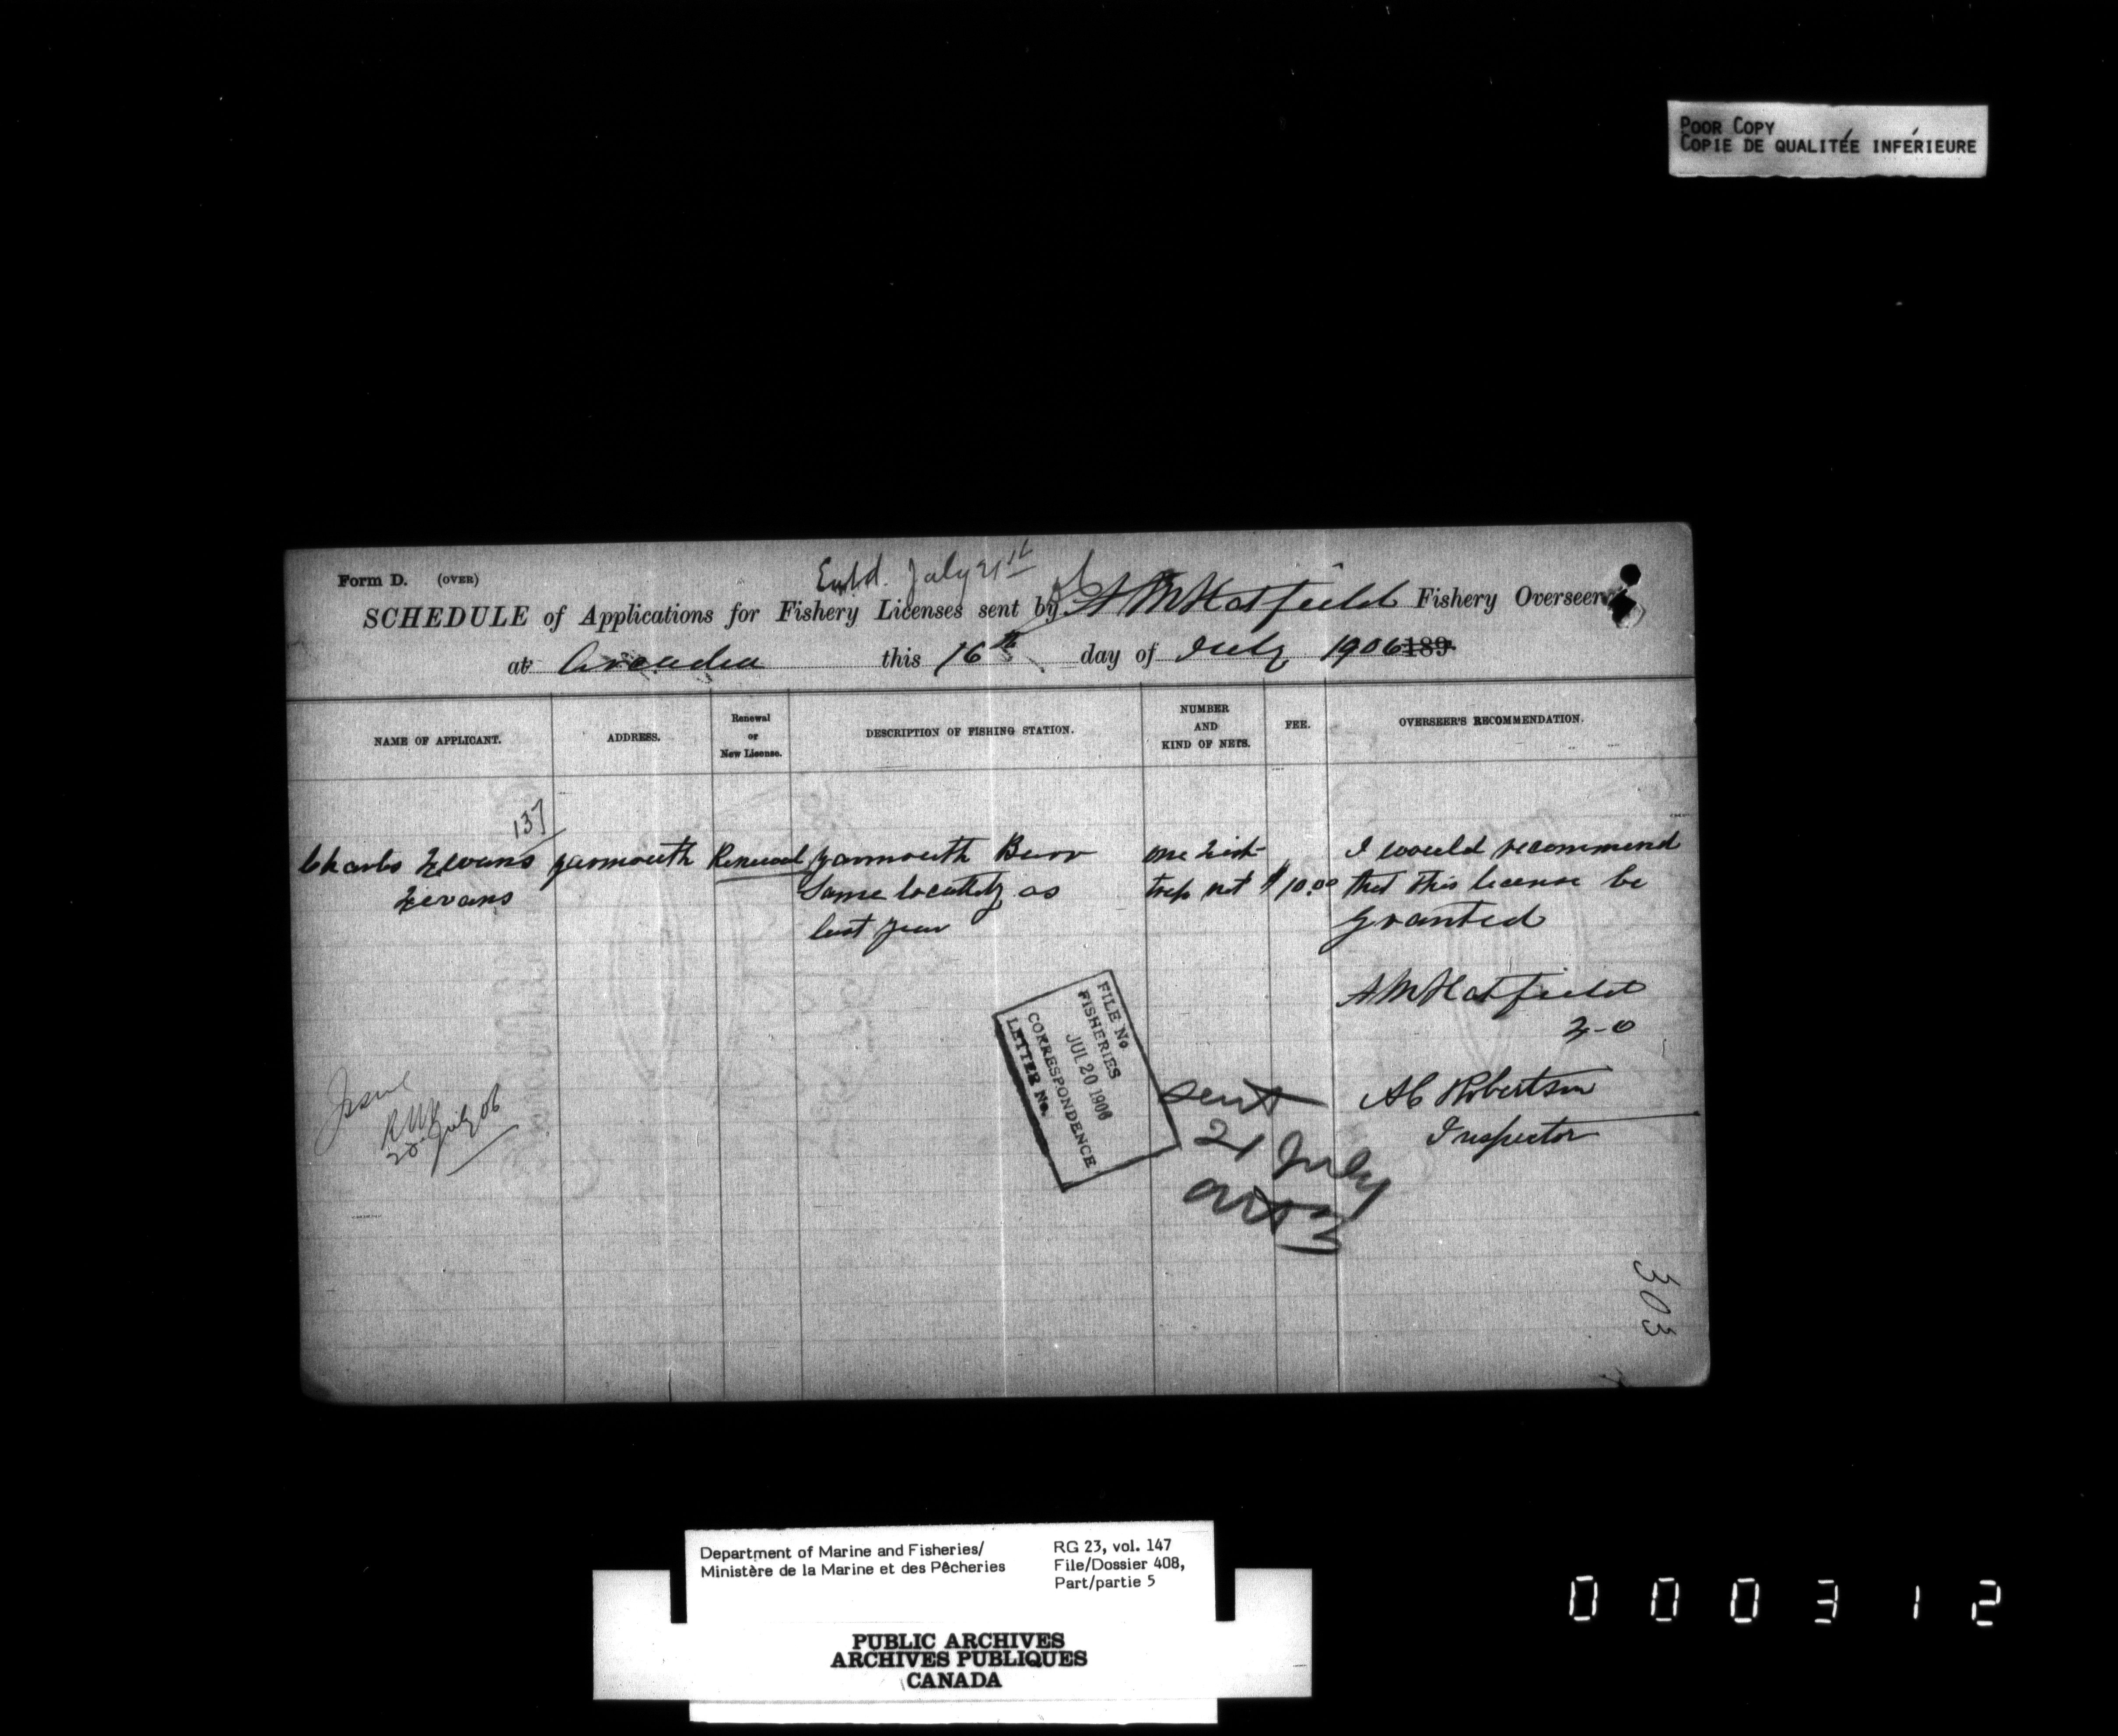 POOR COPY
COPIE DE QUALITÉE INFÉRIEURE
Form D. (OVER)
Entd. July 21st
SCHEDULE of Applications for Fishery Licenses sent by A M Hatfield Fishery Overseer
at Arcadia this 16th day of July 1906 189
NAME OF APPLICANT. ADDRESS. Renewal or New License. DESCRIPTION OF FISHING STATION. NUMBER AND KIND OF NETS. FEE. OVERSEER'S RECOMMENDATION.
137
Charles Yarmouth Renewal Yarmouth Barr one I would recommend
Same locality as trap net $10.00 that this license be
last year granted
A M Hatfield
F-O
FILE No
FISHERIES
JUL 20 1906
CORRESPONDENCE
LETTER No.
A C Robertson
Inspector
Issue
20 July 06
sent
21 July
303
Department of Marine and Fisheries/
Ministère de la Marine et des Pêcheries
RG 23, vol. 147
File/Dossier 408,
Part/partie 5
PUBLIC ARCHIVES
ARCHIVES PUBLIQUES
CANADA
000312